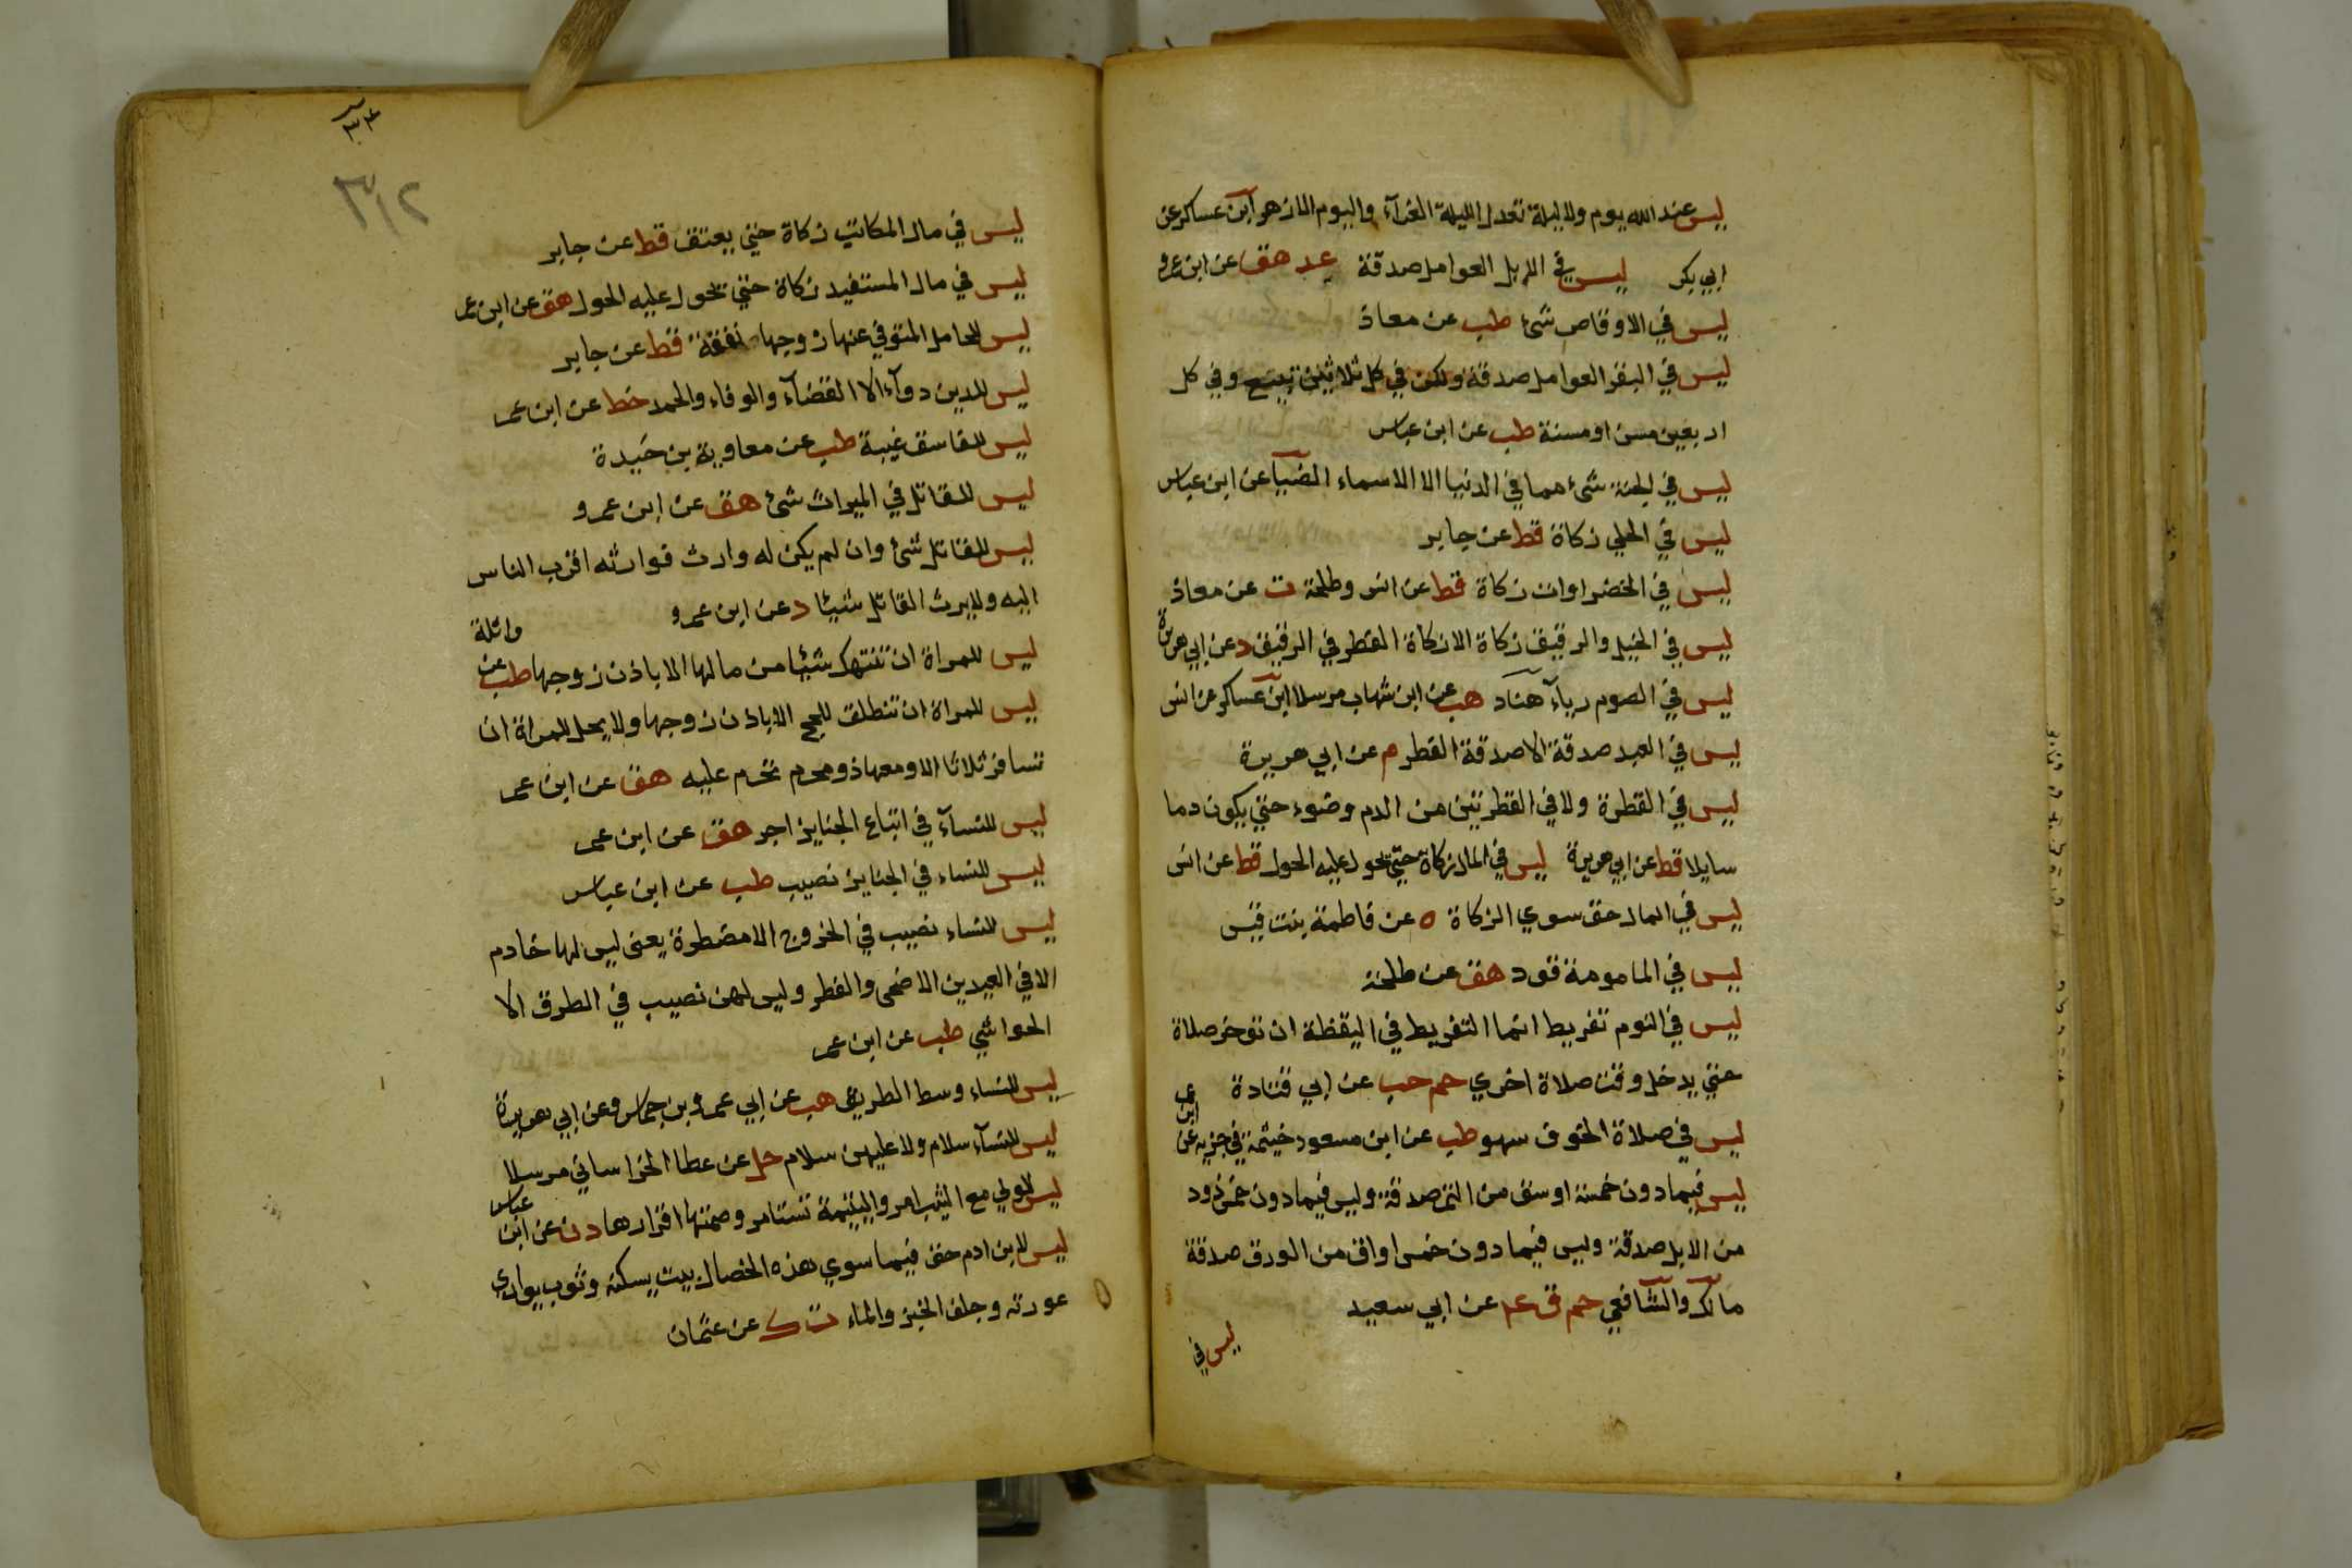 ليس عند الله يوم ولا ليلة تعدل الليلة الغرآء واليوم الازهر ابن عساكر عن
ابي بكر ليس في الابل العوامل صدقة عد هق عن ابن عمرو
ليس في الاوقاص شئ طب عن معاذ
ليس في البقر العوامل صدقة ولكن في كل ثلاثين تبيع وفي كل
اربعين مسن او مسنة طب عن ابن عباس
ليس في الجنة شئ مما في الدنيا الا الاسماء الضيا عن ابن عباس
ليس في الحلي زكاة قط عن جابر
ليس في الخضراوات زكاة قط عن انس وطلحة ت عن معاذ
ليس في الخيل والرقيق زكاة الا زكاة الفطر في الرقيق د عن ابي هريرة
ليس في الصوم رياء هناد هب عن ابن شهاب مرسلا ابن عساكر عن انس
ليس في العبد صدقة الا صدقة الفطر م عن ابي هريرة
ليس في القطرة ولا في القطرتين من الدم وضوء حتي يكون دما
سايلا قط عن ابي هريرة ليس في المال زكاة حتي يحول عليه الحول قط عن انس
ليس في المال حق سوي الزكاة ه عن فاطمة بنت قيس
ليس في المامومة قود هق عن طلحة
ليس في النوم تفريط انما التفريط في اليقظة ان توخر صلاة
حتي يدخل وقت صلاة اخري حم حب عن ابي قتادة
ليس في صلاة الخوف سهو طب عن ابن مسعود خيثمة في جزيه عن ابن عمر
ليس فيما دون خمسة اوسق من التمر صدقة وليس فيما دون خمس ذود
من الابل صدقة وليس فيما دون خمس اواق من الورق صدقة
مالك والشافعي حم ق عد عن ابي سعيد
ليس في
٣١٢
ليس في مال المكاتب زكاة حتي يعتق قط عن جابر
ليس في مال المستفيد زكاة حتي يحول عليه الحول هق عن ابن عمر
ليس للحامل المتوفي عنها زوجها نفقة قط عن جابر
ليس للدين دوآء الا القضآء والوفاء والحمد خط عن ابن عمر
ليس للفاسق غيبة طب عن معاوية بن حَيدة
ليس للقاتل في الميراث شئ هق عن ابن عمرو
ليس للقاتل شئ وان لم يكن له وارث فوارثه اقرب الناس
اليه ولا يرث القاتل شيئا د عن ابن عمرو
ليس للمراة ان تنتهك شيئا من مالها الا باذن زوجها طب عن واثلة
ليس للمراة ان تنطلق للحج الا باذن زوجها ولا يحل للمراة ان
تسافر ثلاثا الا ومعها ذو محرم تحرم عليه هق عن ابن عمر
ليس للنسآء في اتباع الجنايز اجر هق عن ابن عمر
ليس للنساء في الجنايز نصيب طب عن ابن عباس
ليس للنساء نصيب في الخروج الا مضطرة يعني ليس لها خادم
الا في العيدين الاضحى والفطر وليس لهن نصيب في الطرق الا
الحواشي طب عن ابن عمر
ليس للنساء وسط الطريق هب عن ابي عمرو بن حماس وعن ابي هريرة
ليس للنسآء سلام ولا عليهن سلام حل عن عطا الخراساني مرسلا
ليس للولي مع الثيب امر واليتيمة تستامر وصمتها اقرارها د ن عن ابن عباس
ليس لابن ادم حق فيما سوي هذه الخصال بيت يسكنه وثوب يواري
عورته وجلف الخبز والماء ت ك عن عثمان